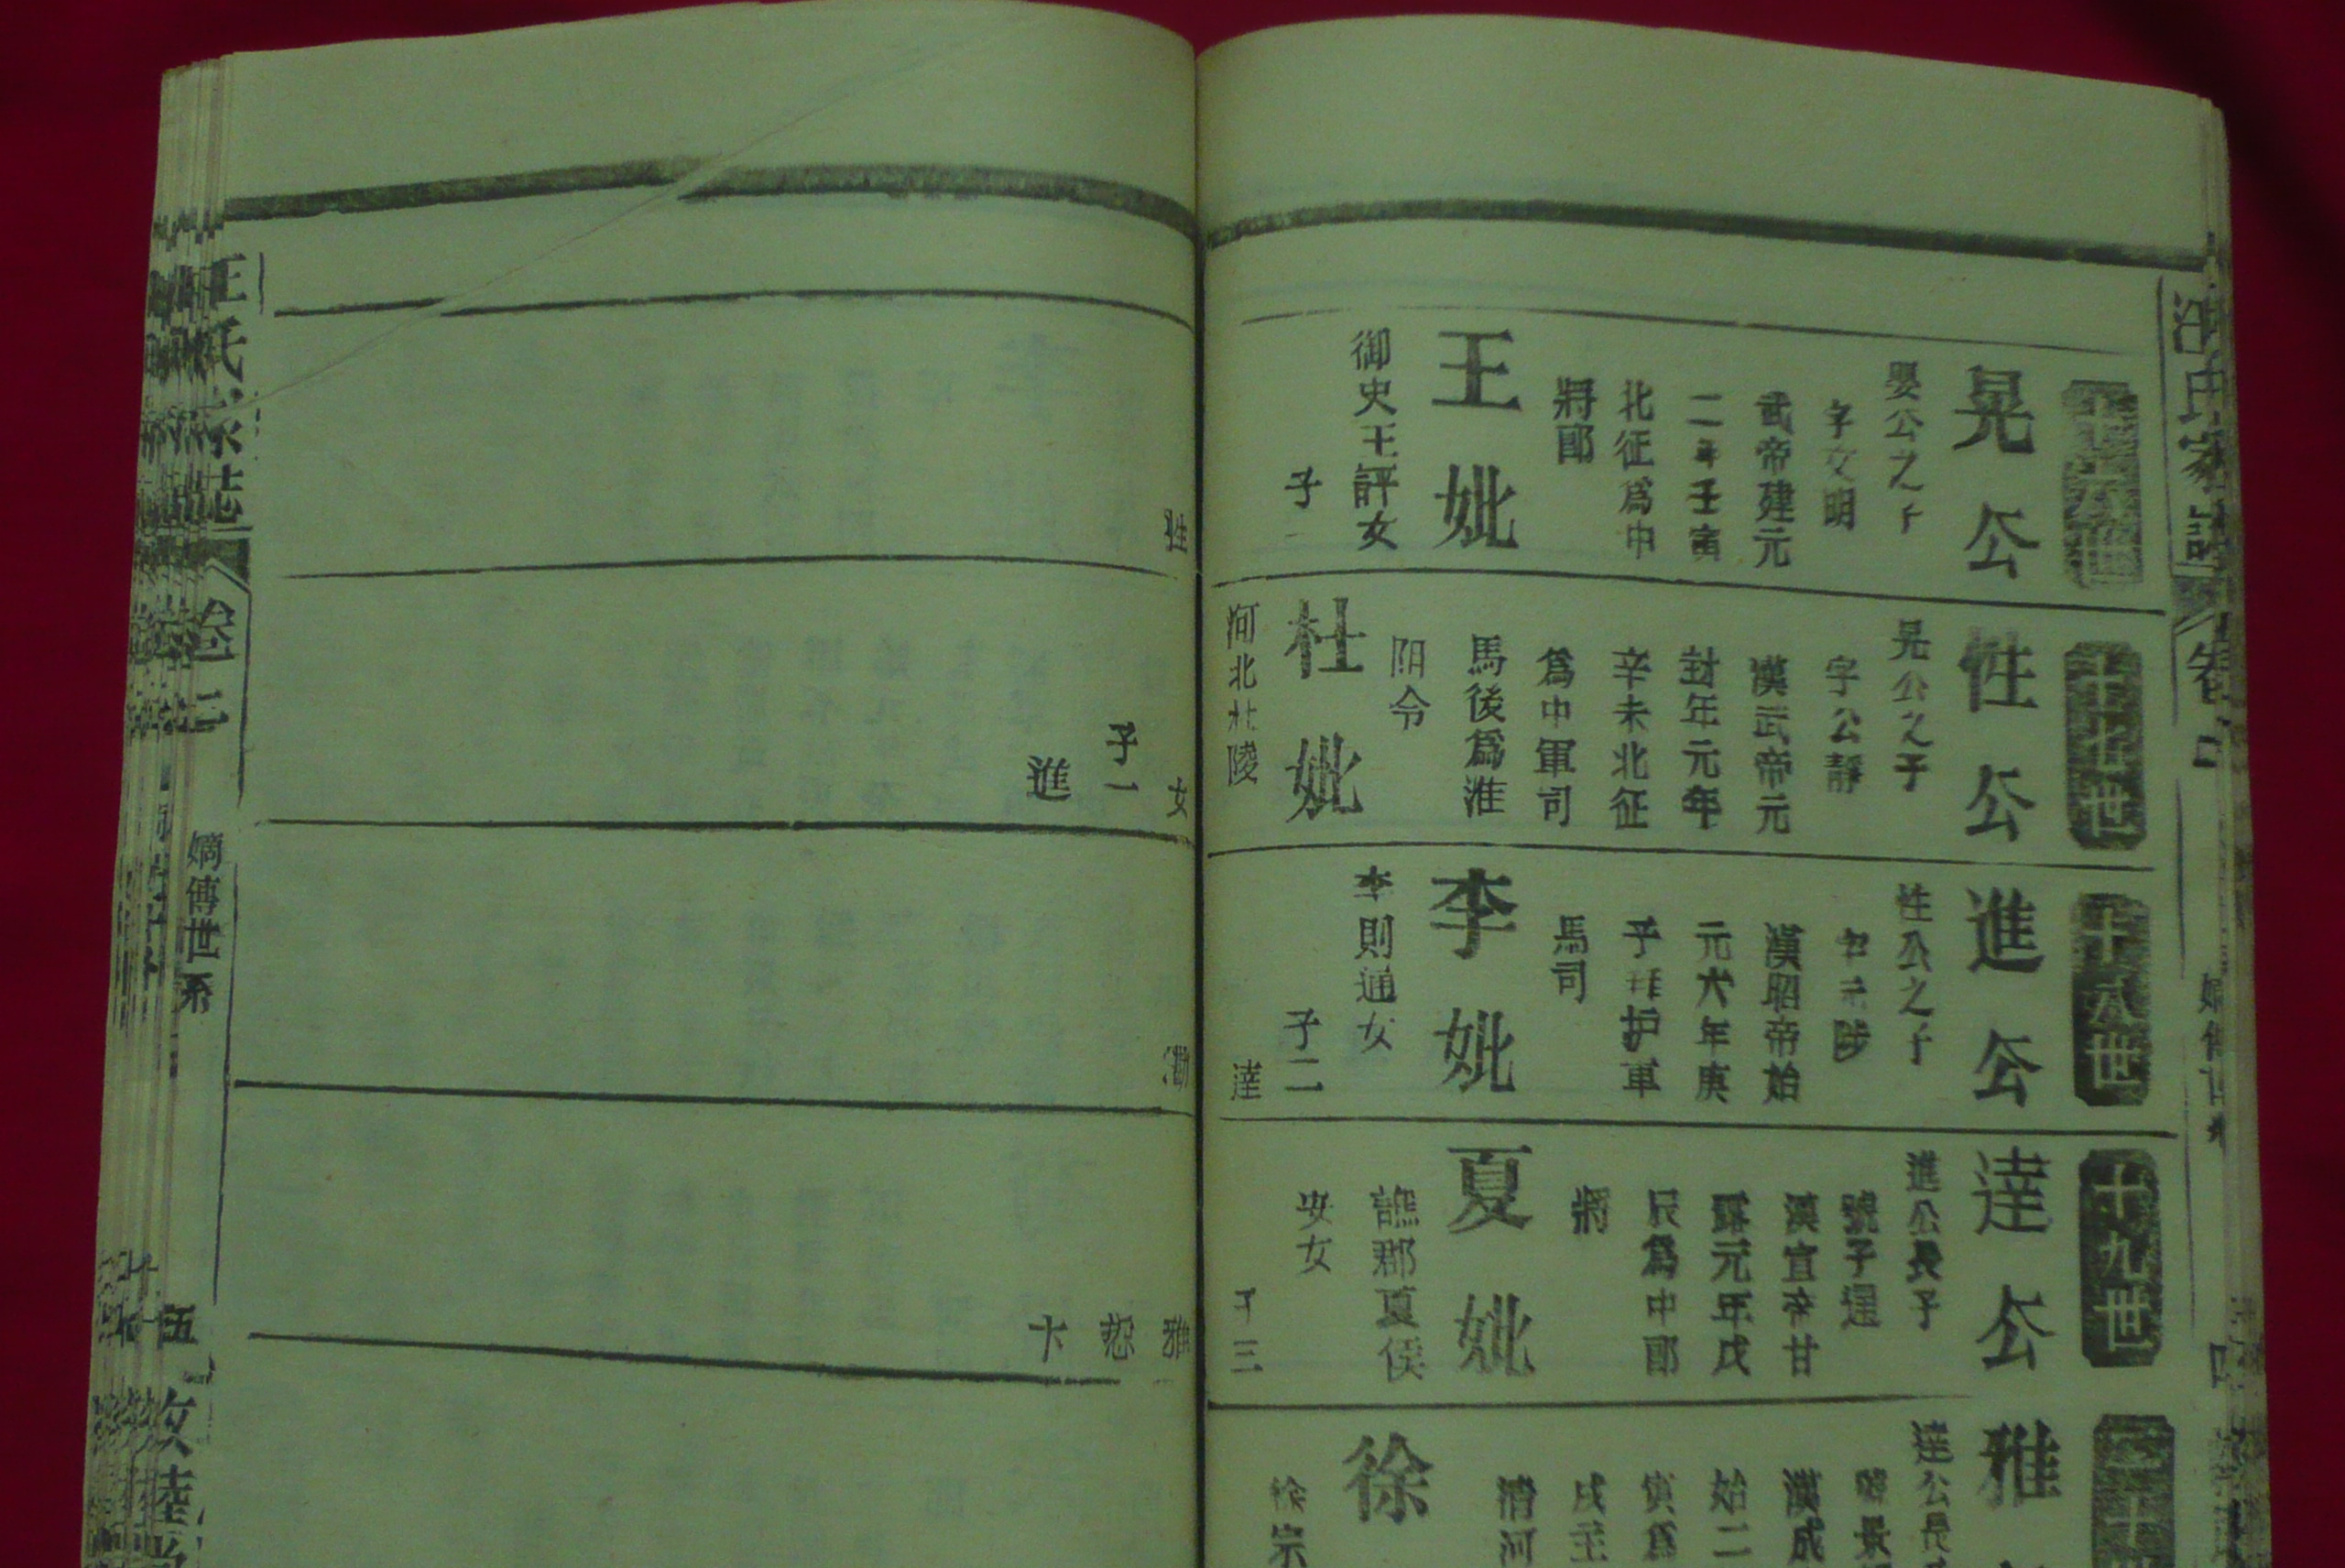 汪氏家誌
卷二
十六世
晃公
嬰公之子
字文明
武帝建元
二年壬寅
北征爲中
將郎
王妣
御史王評女
子一
性
十七世
性公
晃公之子
字公靜
漢武帝元
封年元年
辛未北征
爲中軍司
馬後爲淮
阳令
杜妣
河北杜陵
女
子一
進
十八世
進公
性公之子
字元陟
漢昭帝始
元六年庚
子拜护軍
馬司
李妣
李則通女
子二
達
十九世
達公
進公長子
號子逞
漢宣帝甘
露元年戊
辰爲中郎
將
夏妣
譙郡夏侯
安女
子三
雅
恕
卞
二十
雅
達公長
漢成
始二
寅爲
戌主
清河
徐
徐宗
汪氏家誌
卷二
嫡傳世系
伍
敦睦堂